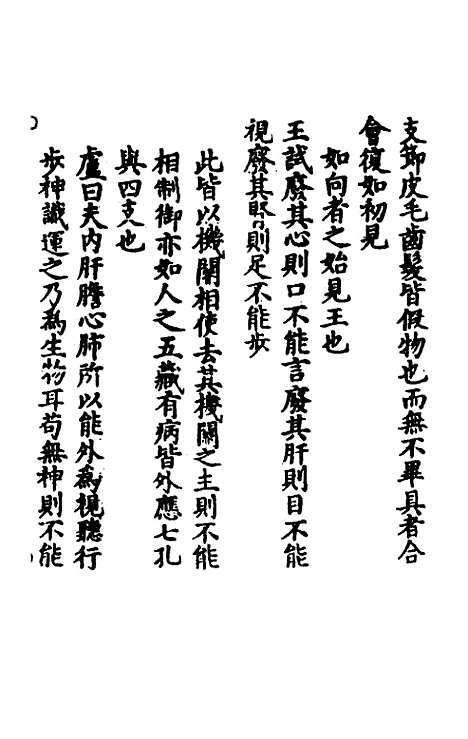 支節皮毛齒髮皆假物也而無不畢具者合
會復如初見
如向者之始見王也
王試廢其心則口不能言廢其肝則目不能
視廢其腎則足不能步
此皆以機關相使去其機關之主則不能
相制御亦如人之五藏有病皆外應七孔
與四支也
盧曰夫内肝膽心肺所以能外為視聽行
步神識運之乃為生物耳苟無神則不能